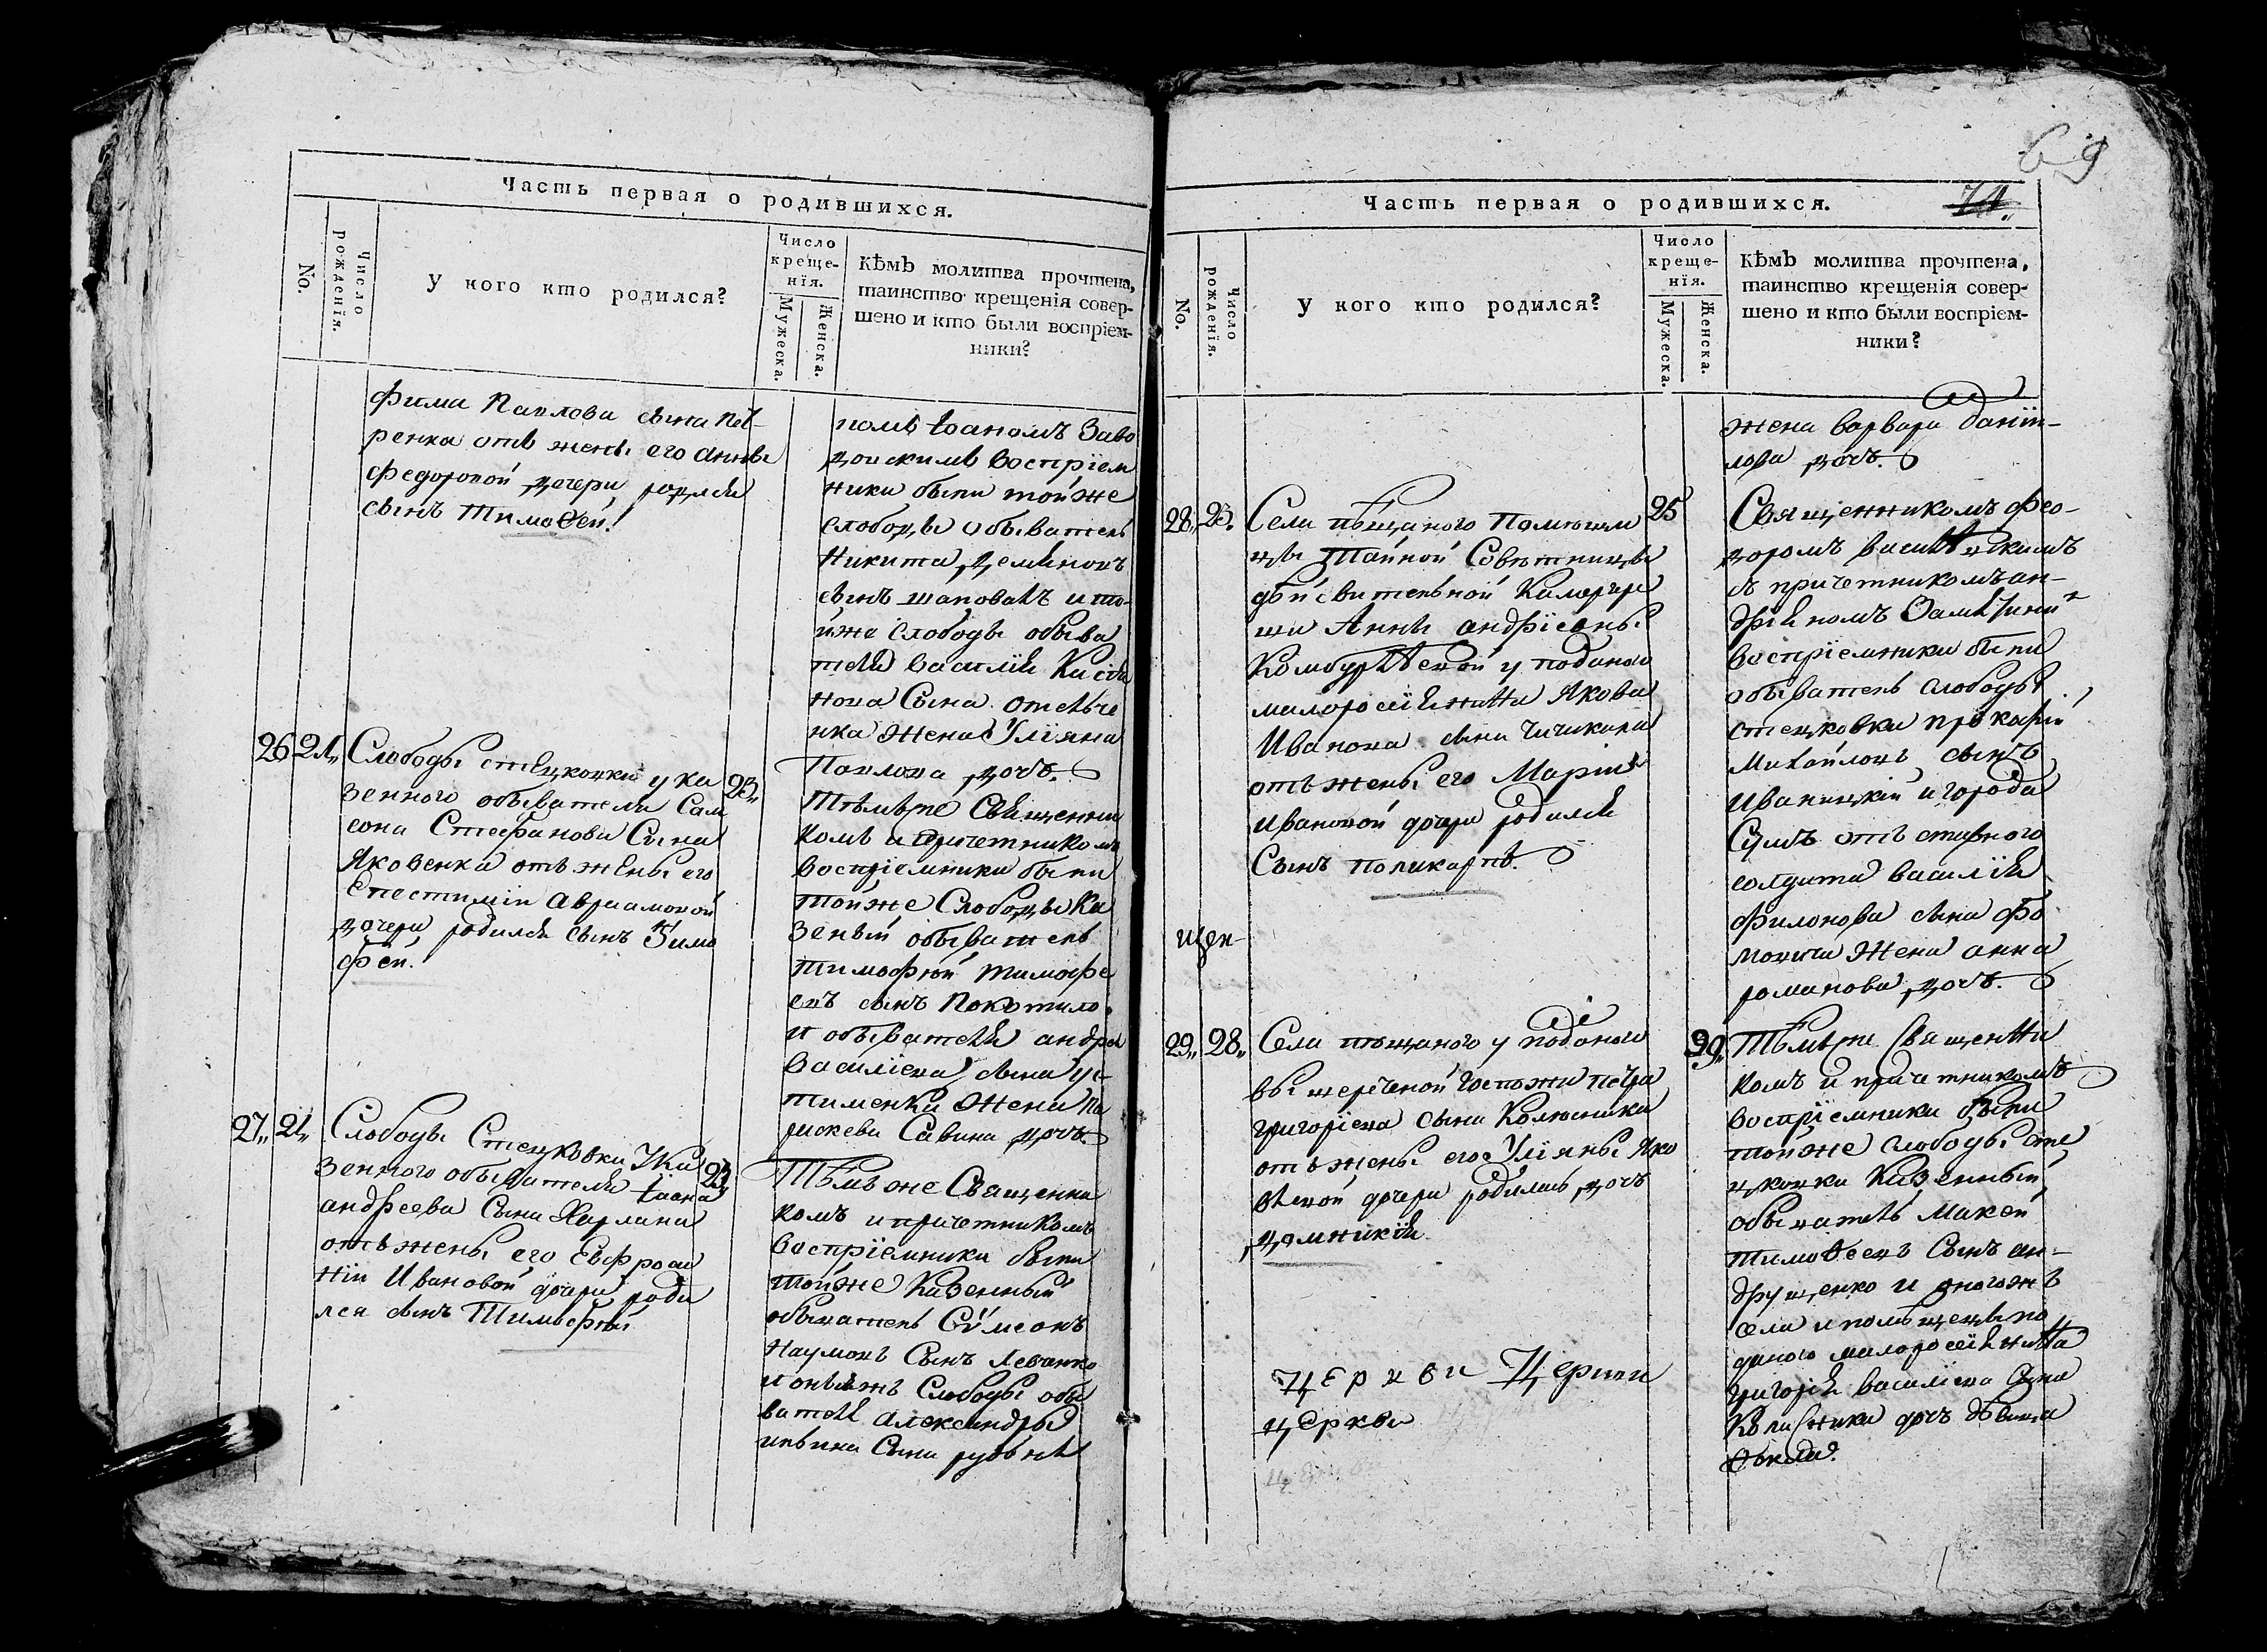 69
Часть первая о родившихся.
No.
Число рожденія.
У кого кто родился?
Число креще-
нія.
Мужеска.
Женска.
Кѣмъ молитва прочтена,
таинство крещенія совер-
шено и кто были воспріем-
ники?
фима Павлова сына Пет-
ренка отъ жены его Анны
Федоровой дочери родился
сынъ Тимоѳей
помъ Іоаномъ Заво
донскимъ Воспріем
ники были тойже
слободы обыватель
Никита Деменовъ
сынъ шаповалъ и то-
йже Слободы обыва
теля Василія
нова Сына
нка жена Уліяна
Павлова дочь.
26 21 Слободы стецковки у ка
зенного обывателя Сам
сона Стефанова Сына
Яковенка отъ жены его
Епестиміи Авраамовой
дочери родился сынъ Тимо
фей.
23
Тѣмъже Священни
комъ и причетникомъ
воспріемники были
тойже Слободы Ка
зеный обыватель
Тимофей Тимофе
евъ сынъ Покотило
и обывателя андрея
Василіева сына Ус-
тименка жена Па
раскева Савина дочь
27 21 Слободы Стецковки у Ка
зенного обывателя Іоана
андреева Сына Харлана
отъ жены его Евфроси
ніи Ивановой дочери роди
лся сынъ Тимофей
23
Тѣмъ же Священни
комъ и причетникомъ
Воспріемники были
тойже Казенный
обыватель Сѵмеонъ
Наумовъ Сынъ Левченко
и онѣяжъ Слободы обы
вателя Александры
ильина Сына
Часть первая о родившихся.
71
No.
Число рожденія.
У кого кто родился?
Число креще-
нія.
Мужеска.
Женска.
Кѣмъ молитва прочтена,
таинство крещенія совер-
шено и кто были воспріем-
ники?
жена варвара даніи-
лова дочь.
28 23 Села пѣщаного Помещи
цы Тайной Совѣтницы
дѣйсвительной Камергер
ши Анны андріевны
Комбурлѣевой у поданого
малоросіянина Якова
Иванова сына Чичикала
отъ жены его Маріи
Ивановой дочери родился
Сынъ поликарпъ.
25
Священникомъ Фео-
доромъ
съ причетникомъ ан-
дреемъ
воспріемники были
обыватель слободы
стецковки прокофій
Михайловъ сынъ
Иваницкій и города
Сумъ отъ ставного
солдата василія
филонова сына Фо
мовича жена анна
романова дочь.
щен-
29 28 Села пѣщаного у поданого
вышереченой госпожи Петра
григоріева сына Колюсника
отъ жены его Уліяны Яко
влевой дочери родилась дочь
Домникія
29
Тѣмъже священни
комъ и причетникомъ
воспріемники были
тойже слободы сте
цковки Казенный
обыватель Макей
Тимоѳеевъ Сынъ ан-
друщенко и оногожъ
села и помѣщицы по
даного малоросіянина
григорія василіева сына
Колисника дочь дѣвица
Ѳекла.
Церкви Церкви
церкви